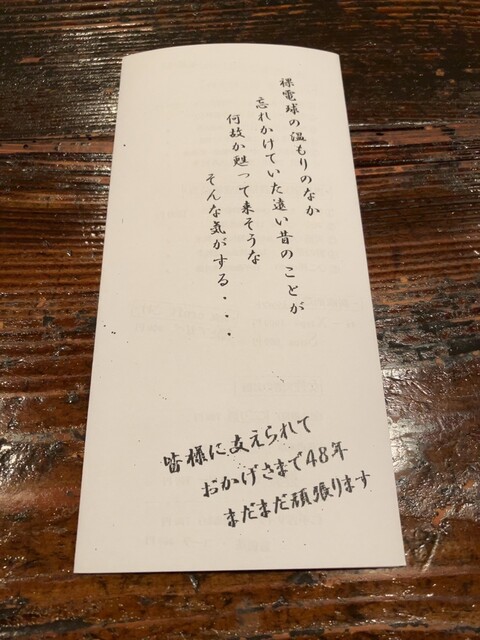 裸電球の温もりのなか
忘れかけていた遠い昔のことが
何故か甦って来そうな
そんな気がする・・・
皆様に支えられて
おかげさまで48年
まだまだ頑張ります